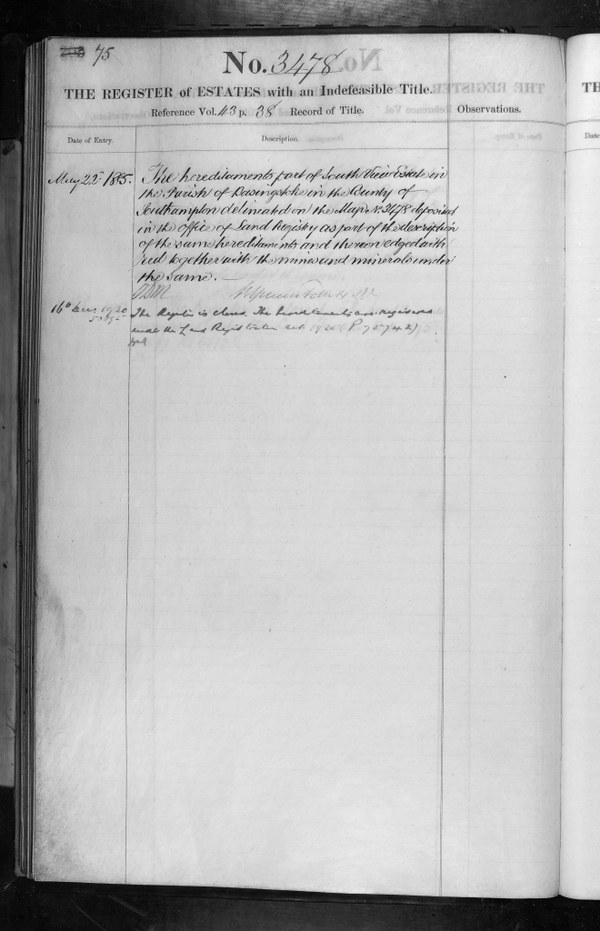 75
No. 3478
THE REGISTER of ESTATES with an Indefeasible Title.
Reference Vol. 43 p. 38 Record of Title. Observations.
Date of Entry. Description.
May 22nd 1885. The hereditaments part of South View Estate in
the Parish of Basingstoke in the County of
Southampton delineated on the Map No. 3478 deposited
in the Office of Land Registry as part of the description
of the same hereditaments and thereon edged with
red together with the mines and minerals under
the same.
16th 1920 The Register is closed. The hereditaments are registered
under the Land Registration Act P 75742)
TH
Date